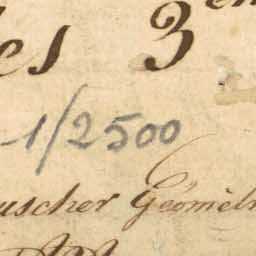 es 3
-1/2500
uscher Geomet